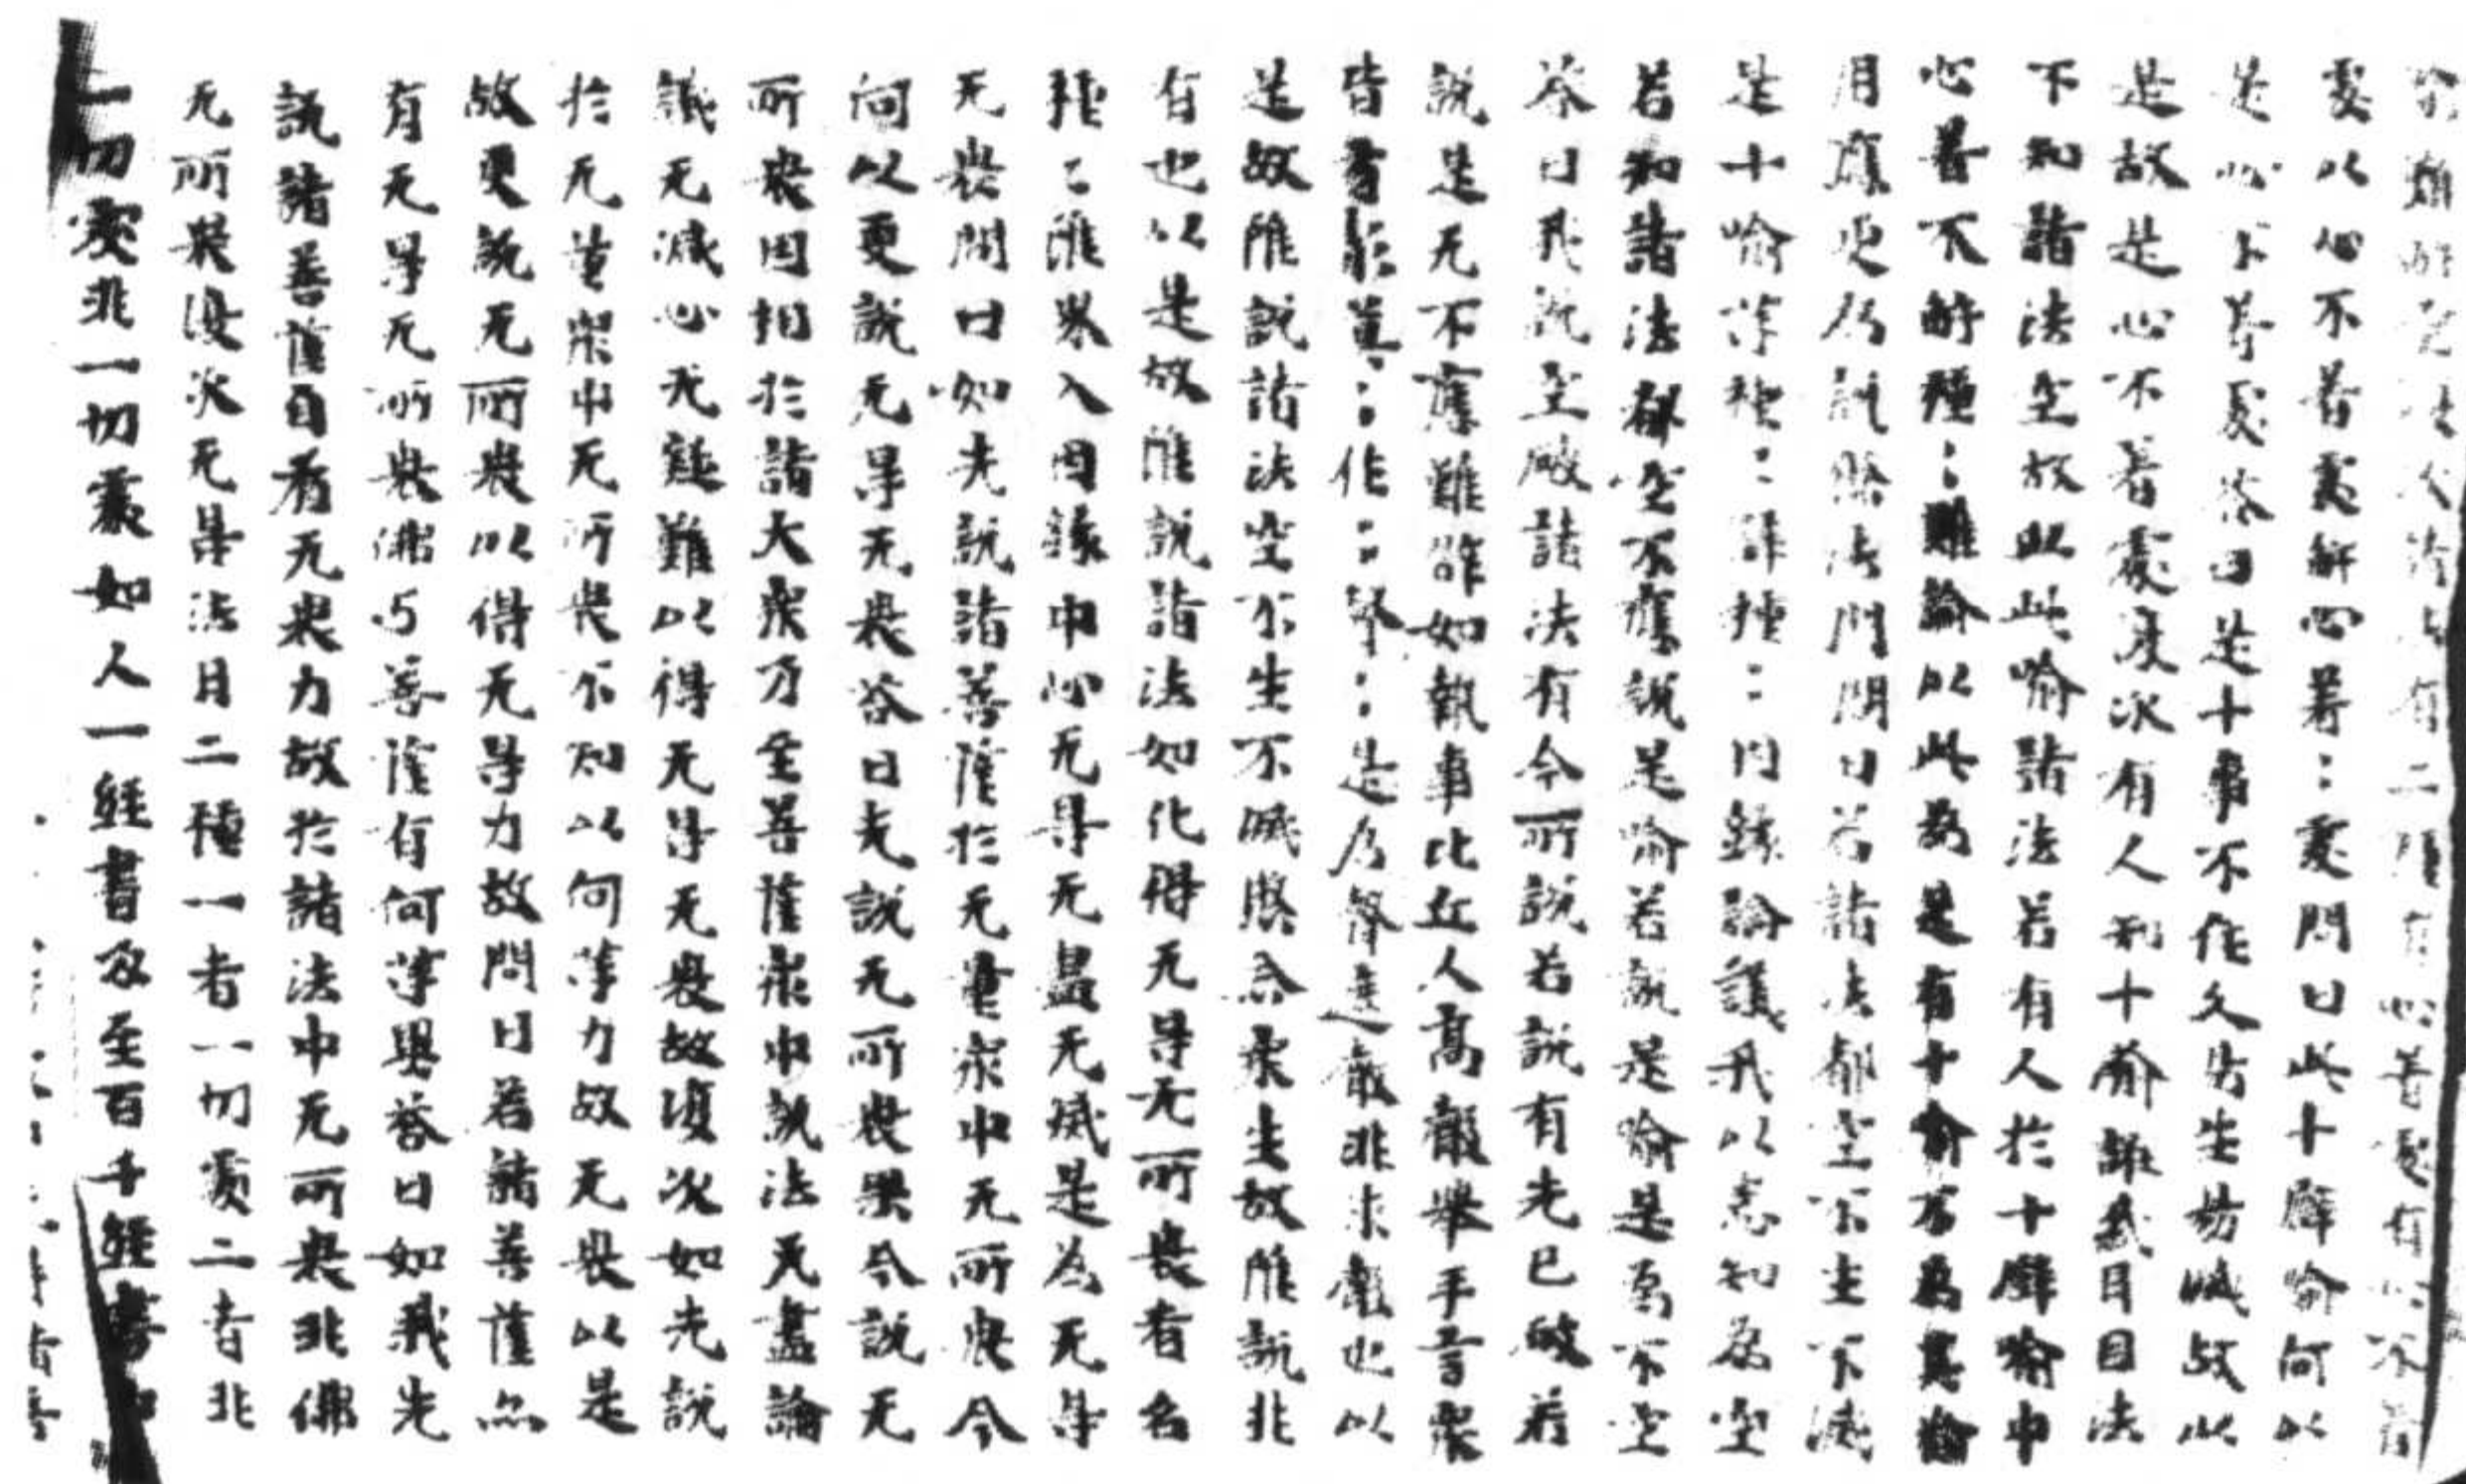 喻難解空法次諸法有二種有心著處有心不著
處以心不著處解心著〻處問曰此十譬喻何以
是心不著處答曰是十事不住久易生易滅故以
是故是心不著處復次有人知十喻誑或耳目法
不知諸法空故以此喻諸法若有人於十譬喻中
心著不解種〻難論以此為是有十喻不為其喻
用應更為說餘法門問曰若諸法都空不生不滅
是十喻等種〻譬種〻因緣論議我以悉知為空
若知諸法都空不應說是喻若說是喻是為不空
答曰我說空破諸法有今所說若說有先已破若
說是无不應難譬如執事比丘人高聲舉手言眾
皆寂靜是為聲遮聲非求聲也以
是故雖說諸法空不生不滅愍念眾生故雖說非
有也以是故雖說諸法如化得无㝵无所畏者名
種〻雖界入因緣中心无㝵无盡无滅是為无㝵
无畏問曰如先說諸菩薩於无量眾中无所畏今
何以更說无㝵无畏答曰先說无所畏果今說无
所畏因相於諸大眾乃至菩薩眾中說法无盡論
議无減心无疑難以得无㝵无畏故復次如先說
於无量眾中无所畏不知以何等力故无畏以是
故更說无所畏以得无㝵力故問曰若諸菩薩亦
有无㝵无所畏佛与菩薩有何等異答曰如我先
說諸菩薩自有无畏力故於諸法中无所畏非佛
无所畏復次无㝵法有二種一者一切處二者非
一切處非一切處如人一經書乃至百千經書中